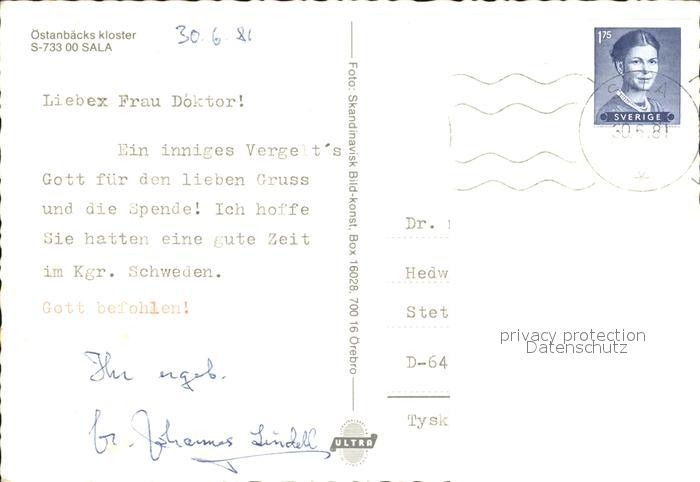 Östanbäcks kloster
S-733 00 SALA
30.6.81
Liebex Frau Doktor!
Ein inniges Vergelt's
Gott für den lieben Gruss
und die Spende! Ich hoffe
Sie hatten eine gute Zeit
im Kgr. Schweden.
Gott befohlen!
Ihr ergeb.
br. Johannes Lindell
Foto: Skandinavisk Bild-konst, Box 16028, 700 16 Örebro
ULTRA
175
SVERIGE
SALA
30.6.81
Dr.
Hedw
Stet
D-64
Tysk
privacy protection
Datenschutz